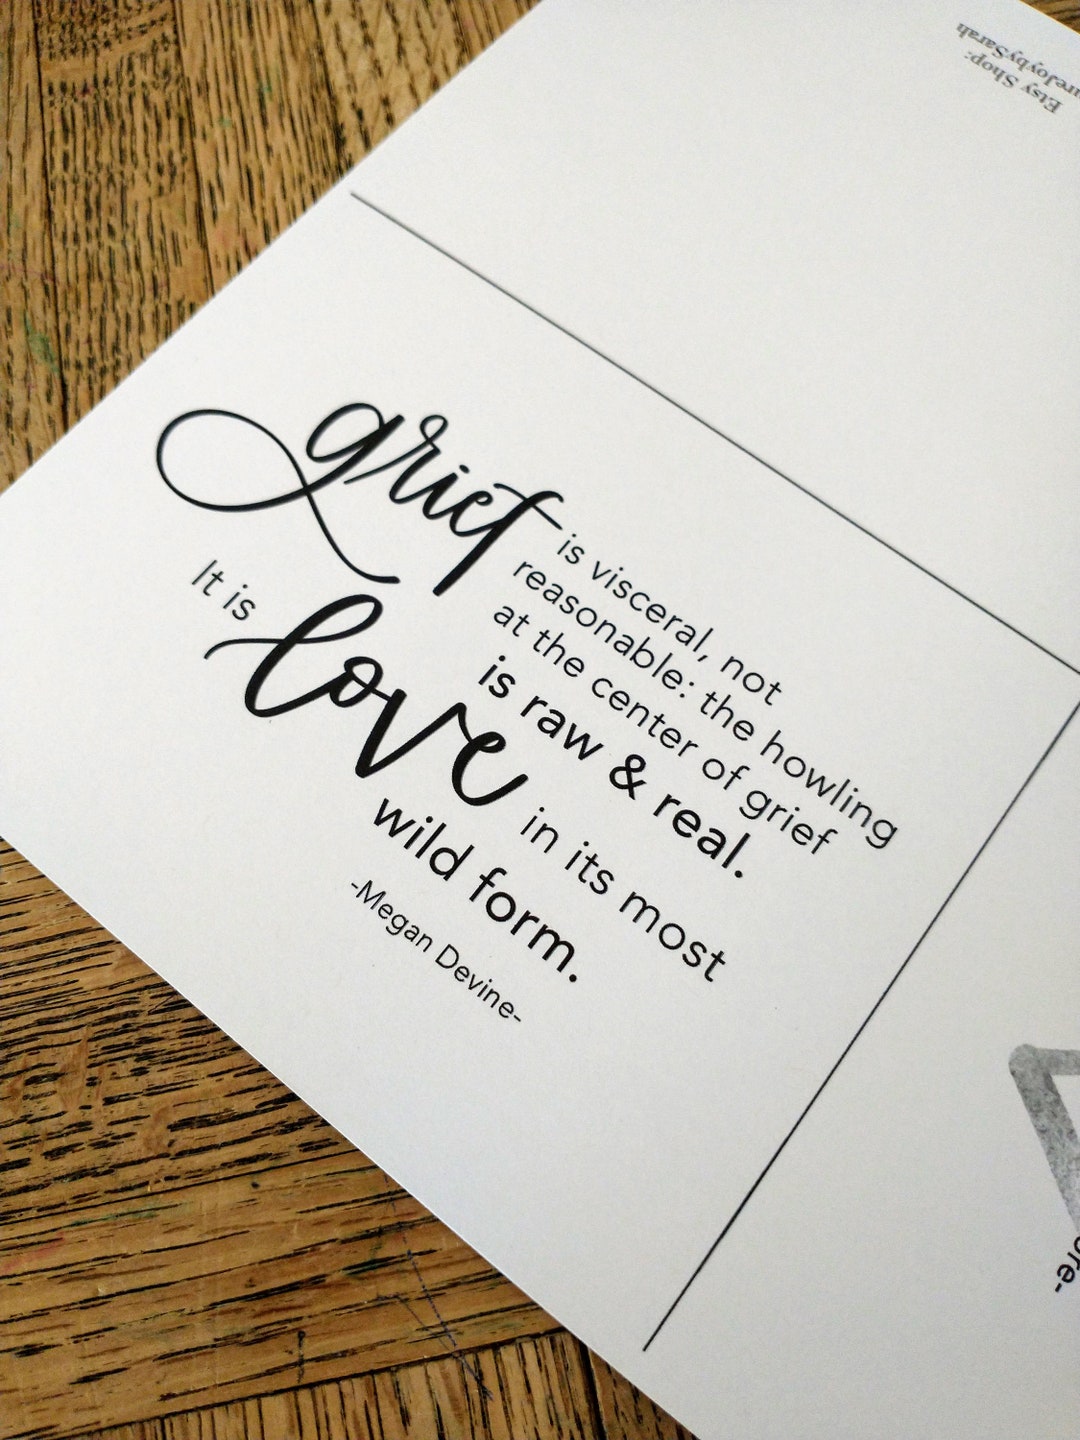 grief is visceral, not
reasonable: the howling
at the center of grief
is raw & real.
It is love in its most
wild form.
-Megan Devine-
Etsy Shop:
ureJoybySarah
ore-